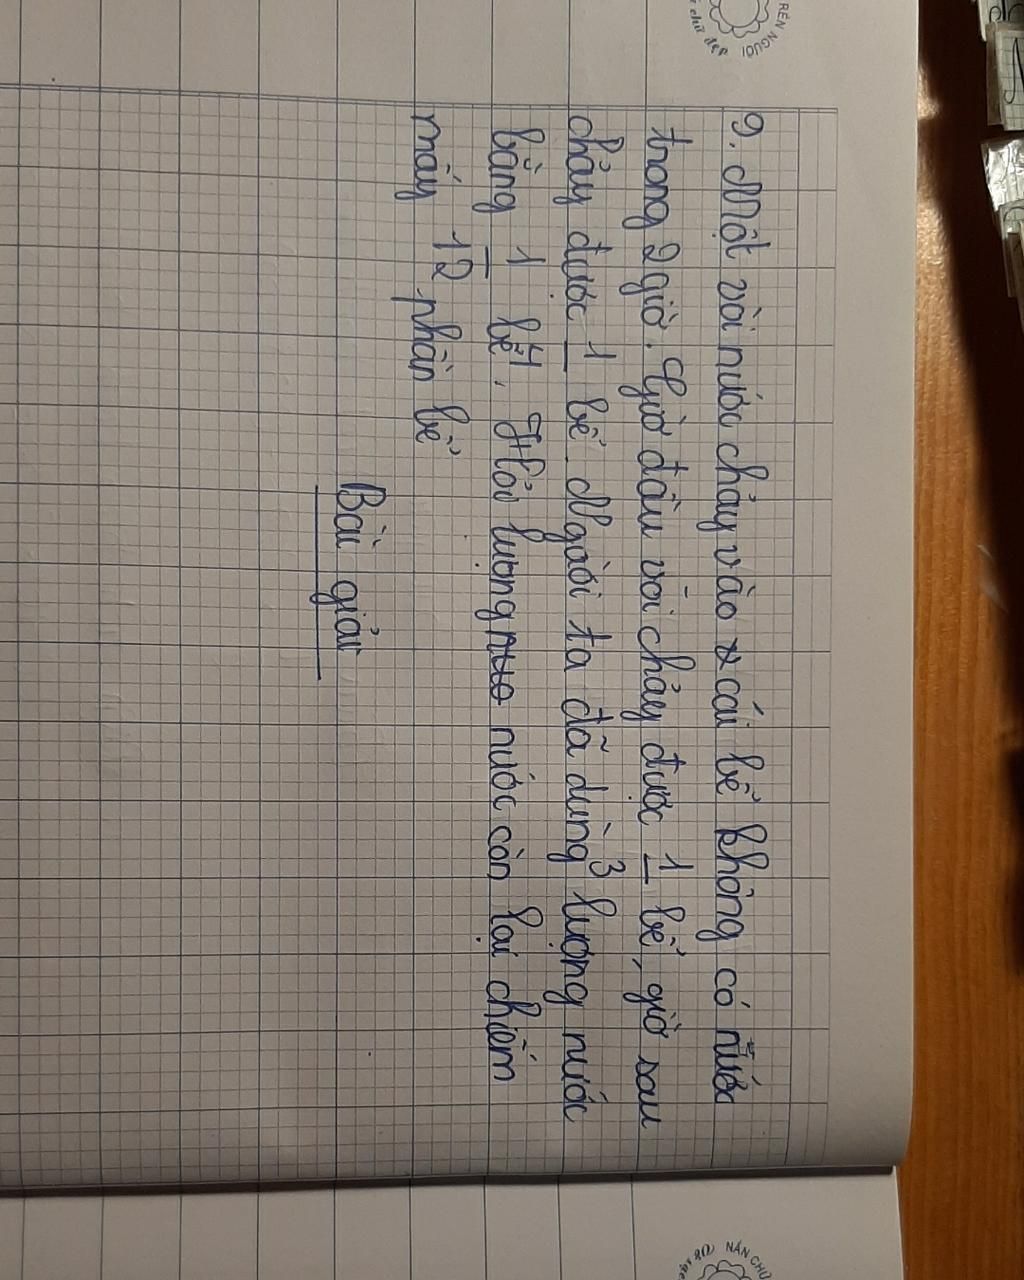 RÈN NGƯỜI
chữ đẹp
9. Một vòi nước chảy vào cái bể không có nước
trong 2 giờ. Giờ đầu vòi chảy được 1/3 bể, giờ sau
chảy được 1/4 bể. Người ta đã dùng lượng nước
bằng 1/12 bể. Hỏi lượng nước còn lại chiếm
mấy phần bể
Bài giải
NẮN CHỮ